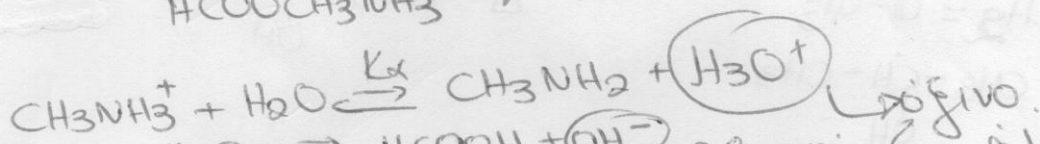 HCOOCH3NH3
CH3NH3+ + H2O ⇌ Kα CH3NH2 + H3O+ ↳ όξινο.
HCOOH + OH-